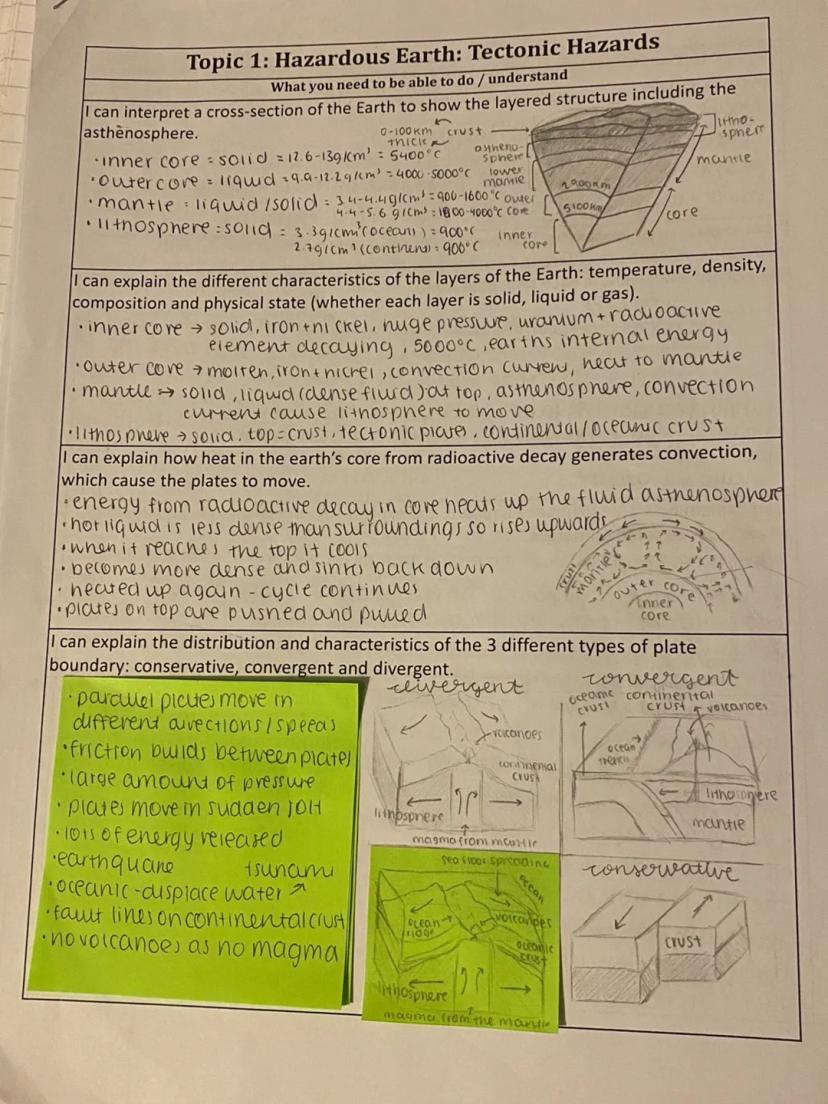 Topic 1: Hazardous Earth: Tectonic Hazards
What you need to be able to do / understand
I can interpret a cross-section of the Earth to show the layered structure including the
asthenosphere.
0-100km thick
crust
litho-sphere
astheno-sphere
mantle
lower mantle
2900km
outer core
5100km
core
inner core
· inner core = solid = 12.6-13g/cm³ = 5400°C
· outer core = liquid = 9.9-12.2g/cm³ = 4000-5000°C
· mantle = liquid/solid = 3.4-4.4g/cm³ = 900-1600°C
4.4-5.6 g/cm³ = 1800-4000°C
· lithosphere = solid = 3.3g/cm³ (ocean) = 900°C
2.7g/cm³ (continent) = 900°C
I can explain the different characteristics of the layers of the Earth: temperature, density,
composition and physical state (whether each layer is solid, liquid or gas).
· inner core → solid, iron+nickel, huge pressure, uranium + radioactive
element decaying, 5000°C, earths internal energy
· outer core → molten, iron+nickel, convection current, heat to mantle
· mantle → solid, liquid (dense fluid) at top, asthenosphere, convection
current cause lithosphere to move
· lithosphere → solid, top=crust, tectonic plates, continental/oceanic crust
I can explain how heat in the earth's core from radioactive decay generates convection,
which cause the plates to move.
· energy from radioactive decay in core heats up the fluid asthenosphere
· hot liquid is less dense than surroundings so rises upwards
· when it reaches the top it cools
· becomes more dense and sinks back down
· heated up again - cycle continues
· plates on top are pushed and pulled
crust
mantle
outer core
inner core
I can explain the distribution and characteristics of the 3 different types of plate
boundary: conservative, convergent and divergent.
· parallel plates move in
different directions/speeds
· friction builds between plates
· large amount of pressure
· plates move in sudden jolt
· lots of energy released
· earthquake tsunami
· oceanic - displace water ↗
· fault lines on continental crust
· no volcanoes as no magma
divergent
volcanoes
continental crust
lithosphere
magma from mantle
convergent
oceanic crust
continental crust
volcanoes
ocean trench
lithosphere
mantle
sea floor spreading
ocean
ocean ridge
volcanoes
oceanic crust
lithosphere
magma from the mantle
conservative
crust